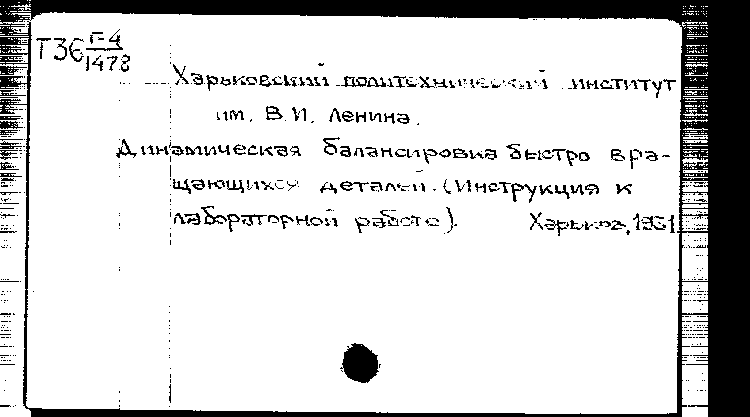 Т36 Г-4
1478
Харьковский политехнический институт
им. В.И. Ленина.
Динамическая балансировка быстро вра-
щающихся деталей. (Инструкция к
лабораторной работе). Харьков,